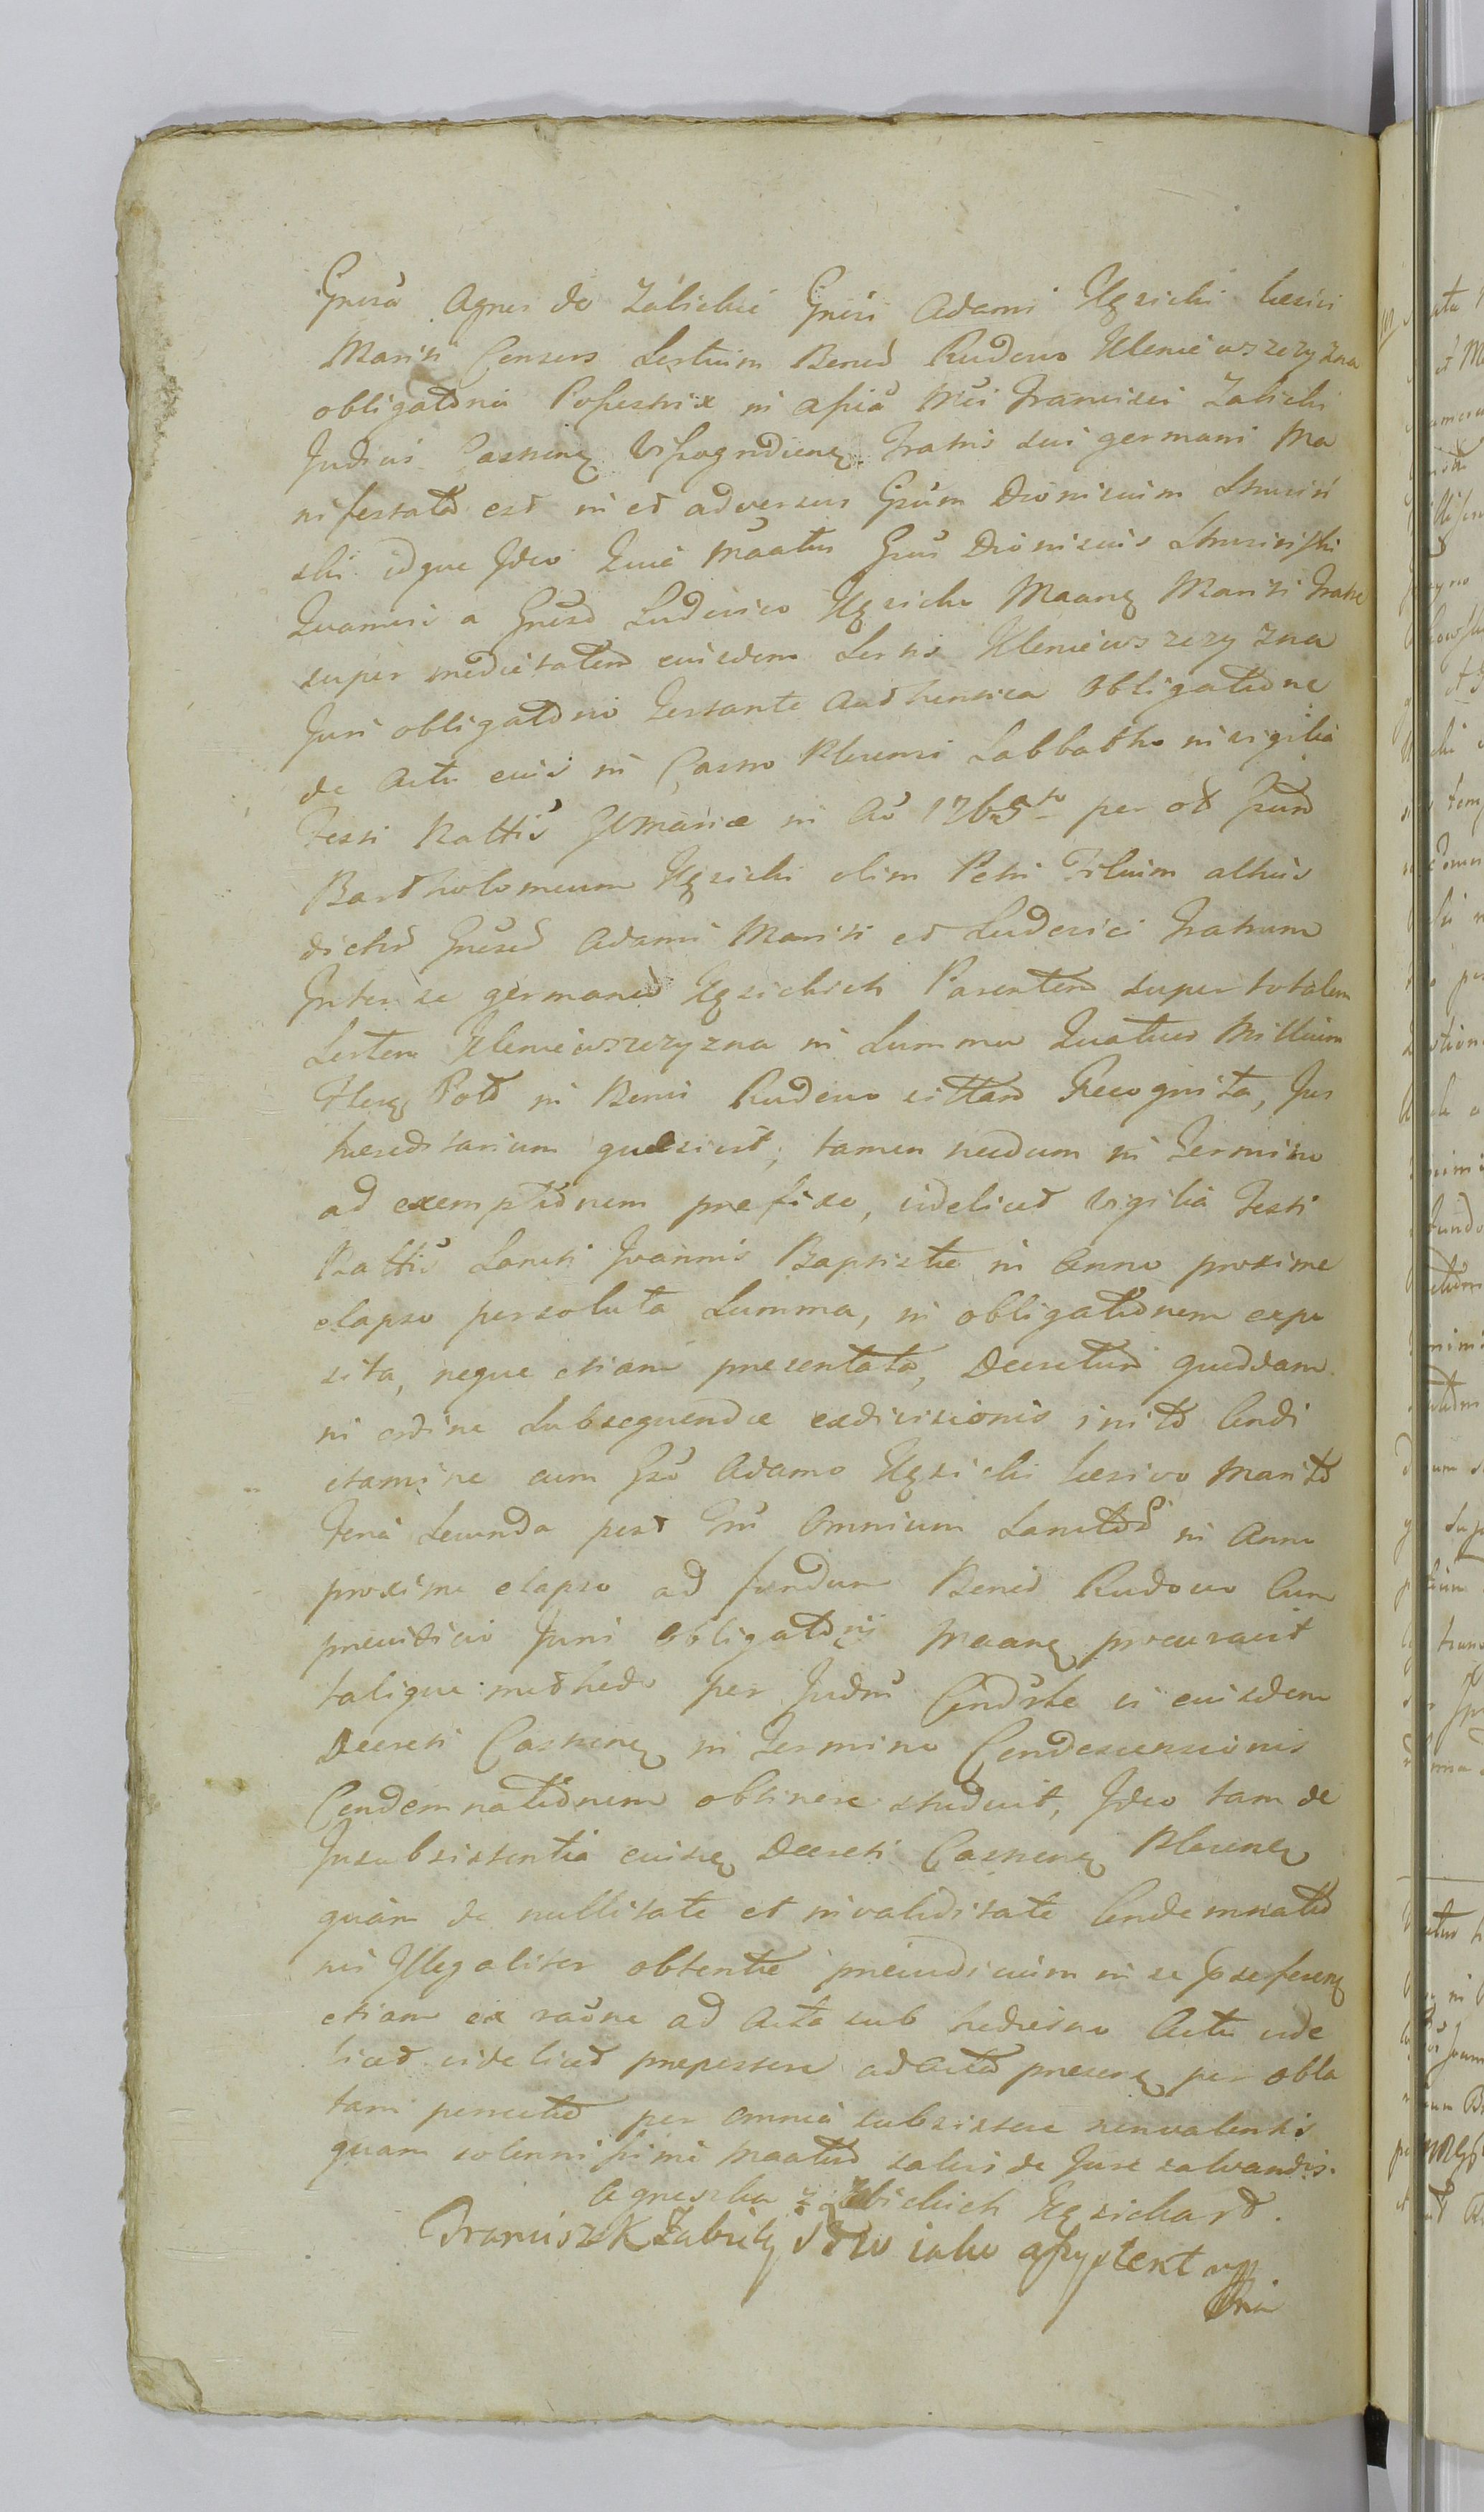 Gnrosa Agnes de Zabickie Gnrosi Adami Uzicki Uxor
Mariti Consors Sortium Bonor Rudowo Kleniewszczyzna
obligatoria Possestrix in assia Mci Francisci Zabicki
Judicis Castren Vissogrodien Fratris sui germani Ma
nifestatd est in et adversus Gsum Dionisium
ski idque Ideo Quia Maatus Gsus Dionisius
Quamvis a Gnroso Ludovico Uzicki Maang Mariti Fratre
super medietatem eiusdem Sortis Kleniewszczyzna
Juri obligatorio Testante Authentica Obligatione
de Actu eius in Castro Plocensi Sabbatho in vigilia
Festi Nattis Marie in Ao 1765to per ol Gsum
Bartholomeum Uzicki olim Petri Filium altius
dictor Gnrosor Adami Mariti et Ludovici Fratrum
Inter se germanor Uzickich Parentem super totalem
Sortem Kleniewszczyzna in Summa Quatuor Millium
Floren Pold in Bonis Rudowo sittam Recognita, Jus
hereditarium quesivit, tamen necdum in Termino
ad exemptionem prefixo, videlicet vigilia Festi
Nattis Sancti Joannis Baptiste in Anno proxime
elapso persoluta Summa, in obligationem expo
sita, neque etiam presentata, Decretum quoddam
in ordine Subsequende exdivisionis inito Condi
ctamine cum Gso Adamo Uzicki Uxorio Marito
Feria Secunda post Fm Omnium Sanctor in Anno
proxime elapso ad fundum Bonor Rudowo Cum
preiudicio Juri Obligatorij Maang procuravit
talique methodo per Judm Condste vi eiusdem
Decreti Castren in Termino Condescensionis
Condemnationem obtinere studuit, Ideo tam de
Insubsistentia eiusq Decreti Castren Plocen
quam de nullitate et invaliditate Condemnatio
nis Illegaliter obtente preiudicium in se preseferen
etiam ex raone ad Acta sub hodierno Actu vide
licet videlicet prepostere ad Acta presen per obla
tam porrectd per omnia subsistere nonvalentis
quam solennissime Maatur salvis de Jure salvandis.
Agneszka z Zabickich Uzicka
Franciszek Zabicki iako assystent mpp